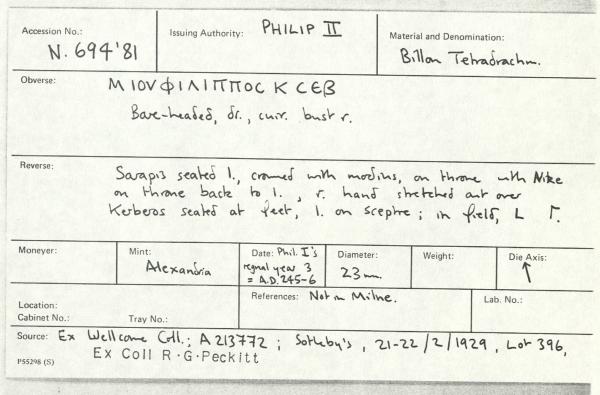 Accession No.:
N. 694'81
Issuing Authority: PHILIP II
Material and Denomination:
Billon Tetradrachm.
Obverse:
Μ ΙΟΥ ΦΙΛΙΠΠΟC Κ CЄΒ
Bare-headed, dr., cuir. bust r.
Reverse:
Sarapis seated l., crowned with modius, on throne with Nike
on throne back to l., r. hand stretched out over
Kerberos seated at feet, l. on sceptre; in field, L Γ.
Moneyer:
Mint:
Alexandria
Date: Phil. I's
regnal year 3
= A.D. 245-6
Diameter:
23 mm.
Weight:
Die Axis:
↑
Location:
Cabinet No.:
Tray No.:
References: Not in Milne.
Lab. No.:
Source: Ex Wellcome Coll.; A 213772; Sotheby's, 21-22/2/1929, Lot 396,
Ex Coll R·G·Peckitt
P55298 (S)